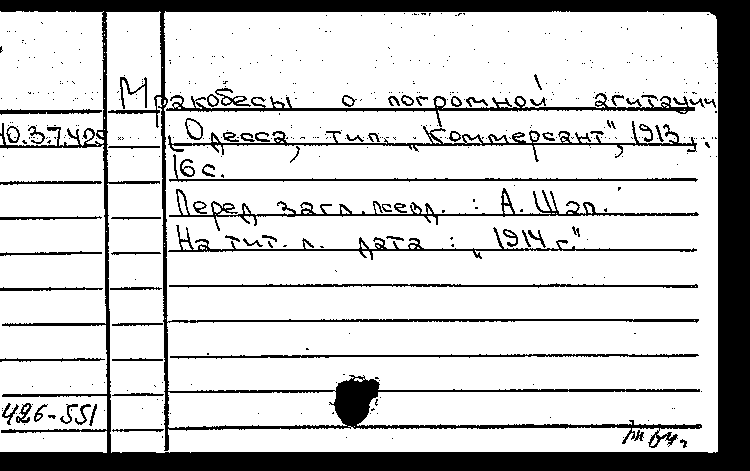 Мракобесы о погромной агитации
10.37.409
[Одесса, тип. „Коммерсант", 1913].
16 с.
Перед загл. псевд. : А. Шап.
На тит. л. дата : „1914 г."
426-551